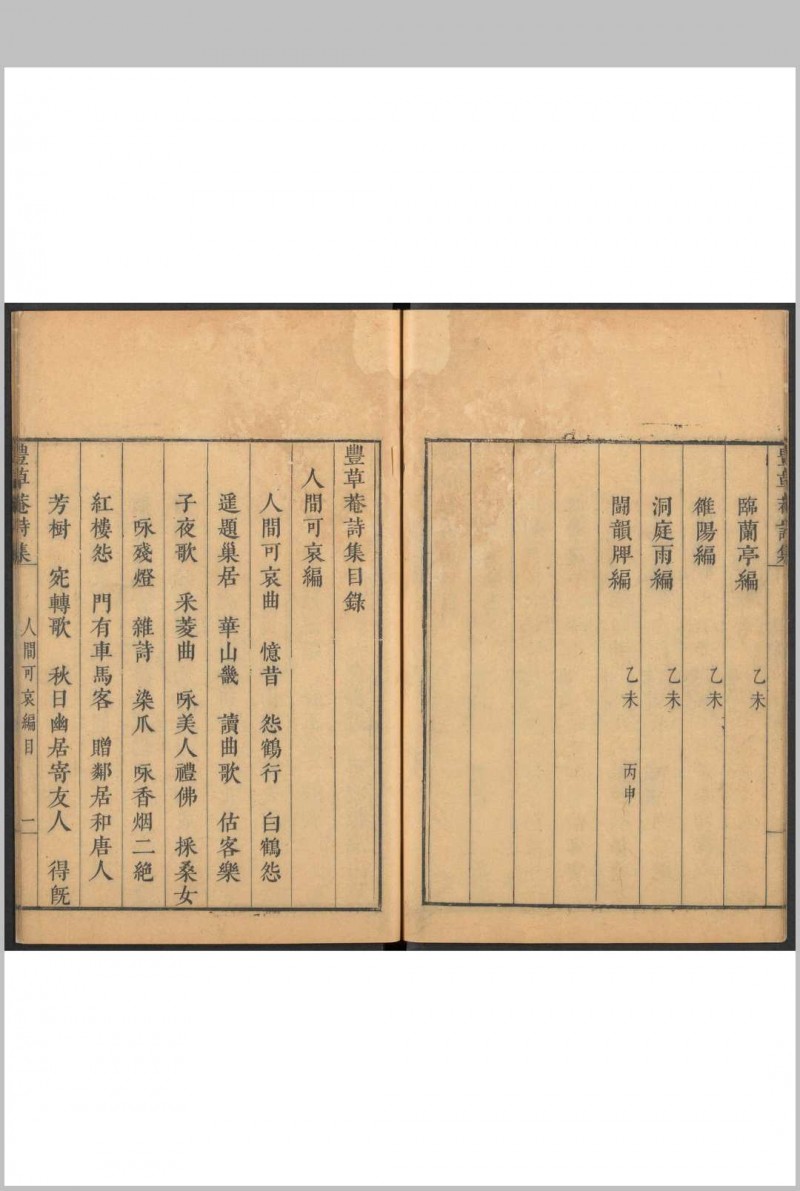 豐草菴詩集
臨蘭亭編　乙未
雒陽編　乙未
洞庭雨編　乙未
鬭韻牌編　乙未　丙申
豐草菴詩集目錄
人間可哀編
人間可哀曲　憶昔　怨鶴行　白鶴怨
遥題巢居　華山畿　讀曲歌　估客樂
子夜歌　采菱曲　咏美人禮佛　採桑女
咏殘燈　雜詩　染爪　咏香烟二絶
紅樓怨　門有車馬客　贈鄰居和唐人
芳樹　宛轉歌　秋日幽居寄友人　得旣
豐草菴詩集　人間可哀編目　一